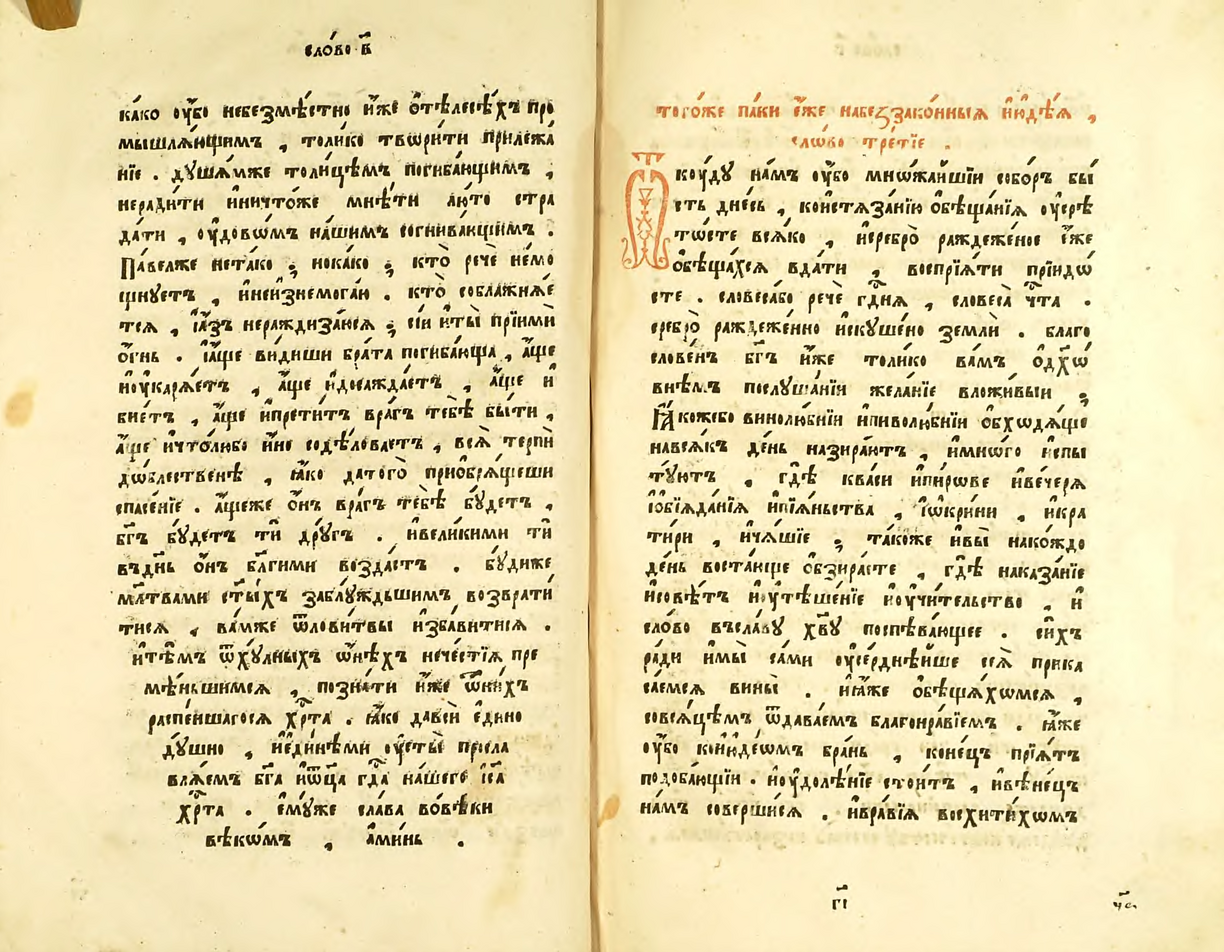 сло́во в҃
ка́ко оу҆́бо небезмѣ́стно и҆́же ѻ҆тѣлесѣ́хъ про
мышлѧ́ющимъ , толи́ко твори́ти прилежа́
нїе . душа́мже толи́цѣмъ погиба́ющимъ ,
неради́ти и҆ничто́же мнѣ́ти лю́то стра
да́ти , оу҆́довѡмъ на́шимъ согнива́ющимъ .
Па́велже нета́ко ; нока́ко ; кто̀ речѐ немо
щнꙋетъ , и҆неи҆знемога́ю . кто̀ соблажнѧ́е
тсѧ , і҆а҆́зъ нераждиза́юсѧ ; сїи и҆ты̀ прїимѝ
ѻ҆́гнь . і҆а҆́ще ви́диши бра́та погиба́юща , а҆́ще
ноукарѧ́етъ , а҆́ще и҆досажда́етъ , а҆́ще и
бїетъ , а҆́ще и҆прети́тъ вра́гъ тебѣ̀ бы́ти ,
а҆́ще и҆что́любо и҆́но содѣ́ловаетъ , всѧ̀ терпѝ
до́блественѣ , ꙗ҆́ко дато́го приѻбрѧ́щеши
спасе́нїе . а҆́щеже ѻ҆́нъ вра́гъ тебѣ̀ бꙋ́детъ ,
бг҃ъ бꙋ́детъ тѝ дрꙋ́гъ . и҆вели́кими тѝ
въдн҃ь ѻ҆́нъ бл҃ги́ми возда́стъ . бꙋ́диже
мл҃твами ст҃ы́хъ заблꙋ́ждьшимъ возврати́
тисѧ , ва́мже ѿлови́твы и҆зба́витисѧ .
и҆тѣ́мъ ѿхꙋ́лныхъ ѡ҆́нѣхъ нече́стїѧ пре
мѣ́ньшимсѧ , позна́ти и҆́же ѿни́хъ
распе́ншагосѧ хр҃та̀ . ꙗ҆́ко давсѝ є҆ди́но
дꙋ́шно , и҆є҆ди́нѣми оу҆сты̀ просла
влѧ́емъ бг҃а и҆ѻ҆ц҃а̀ гд҃а на́шего і҆с҃а
хр҃та̀ . є҆мꙋ́же сла́ва вовѣ́ки
вѣкѡ́мъ , а҆ми́нь .
тогѡ́же па́ки є҆́же набеззако́нныѧ и҆ю҆дѣ́ѧ ,
сло́во тре́тїе .
Ѿкꙋ́дꙋ на́мъ оу҆́бо мно́жаишїи собо́ръ бы́
сть дне́сь , коистѧза́нїю ѻ҆бѣща́нїѧ оу҆срѣ́
то́сте всѧ́ко , и҆сребро̀ ражде́женое є҆́же
ѻ҆бѣща́хсѧ вда́ти , воспрїѧ́ти прїидо́
сте . словеса́бо речѐ гд҃нѧ , словеса̀ чт҃а .
сребро̀ ражде́женно и҆скꙋ́шено землѝ . благо
слове́нъ бг҃ъ и҆́же толи́ко ва́мъ ѻ҆дх҃о́
внѣмъ послꙋша́нїи жела́нїе вложи́выи ;
Ꙗ҆́кожебо винолю́бнїи и҆пиволю́бнїи ѻ҆бхѡдѧ́ще
навсѧ́къ де́нь назира́ютъ , и҆мно́го и҆спы́
тꙋютъ , гдѣ̀ ква́си и҆пи́рове и҆ве́черѧ
і҆ѻ҆бїѧда́нїѧ и҆пїѧ́ньства , і҆ѡ҆кри́ни , и҆кра
ти́ри , и҆ча́шїе ; та́коже и҆вы̀ нако́ждо
де́нь воста́юще ѻ҆бзира́ете , гдѣ̀ наказа́нїе
и҆совѣ́тъ и҆оу҆тѣше́нїе и҆оу҆чи́тельство , и
сло́во въсла́вꙋ хв҃ꙋ поспѣва́ющее . си́хъ
ра́ди и҆мы̀ са́ми оу҆се́рднѣише сеѧ̀ прика
са́емсѧ вины̀ . и҆ꙗ҆́же ѻ҆бѣща́хомсѧ ,
совсѧ́цѣмъ ѿдава́емъ благонра́вїемъ . ꙗ҆́же
оу҆́бо кои҆юде́ѡмъ бра́нь , коне́цъ прїѧ́тъ
подоба́ющїи . и҆оу҆долѣ́нїе стои́тъ , и҆вѣне́цъ
на́мъ соверши́сѧ . и҆бра́вїѧ восхити́хомъ
гі҃
чс